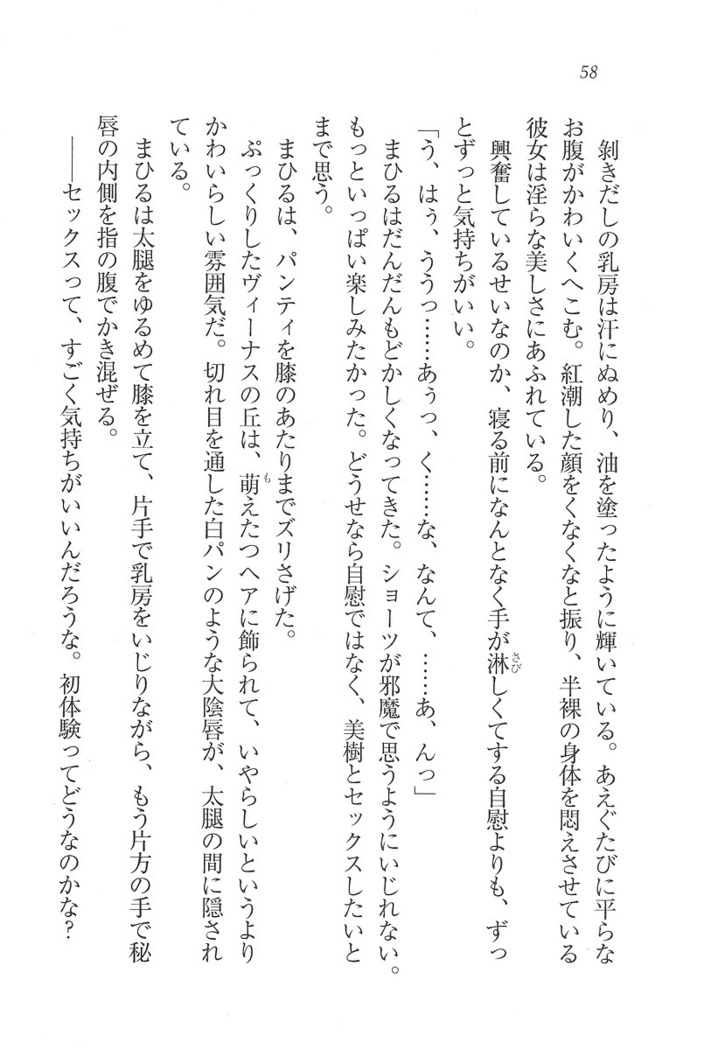 58
剝きだしの乳房は汗にぬめり、油を塗ったように輝いている。あえぐたびに平らな
お腹がかわいくへこむ。紅潮した顔をくなくなと振り、半裸の身体を悶えさせている
彼女は淫らな美しさにあふれている。
興奮しているせいなのか、寝る前になんとなく手が淋しくてする自慰よりも、ずっ
とずっと気持ちがいい。
「う、はぅ、ううっ……あぅっ、く……な、なんて、……あ、んっ」
まひるはだんだんもどかしくなってきた。ショーツが邪魔で思うようにいじれない。
もっといっぱい楽しみたかった。どうせなら自慰ではなく、美樹とセックスしたいと
まで思う。
まひるは、パンティを膝のあたりまでズリさげた。
ぷっくりしたヴィーナスの丘は、萌えたつヘアに飾られて、いやらしいというより
かわいらしい雰囲気だ。切れ目を通した白パンのような大陰唇が、太腿の間に隠され
ている。
まひるは太腿をゆるめて膝を立て、片手で乳房をいじりながら、もう片方の手で秘
唇の内側を指の腹でかき混ぜる。
――セックスって、すごく気持ちがいいんだろうな。初体験ってどうなのかな？